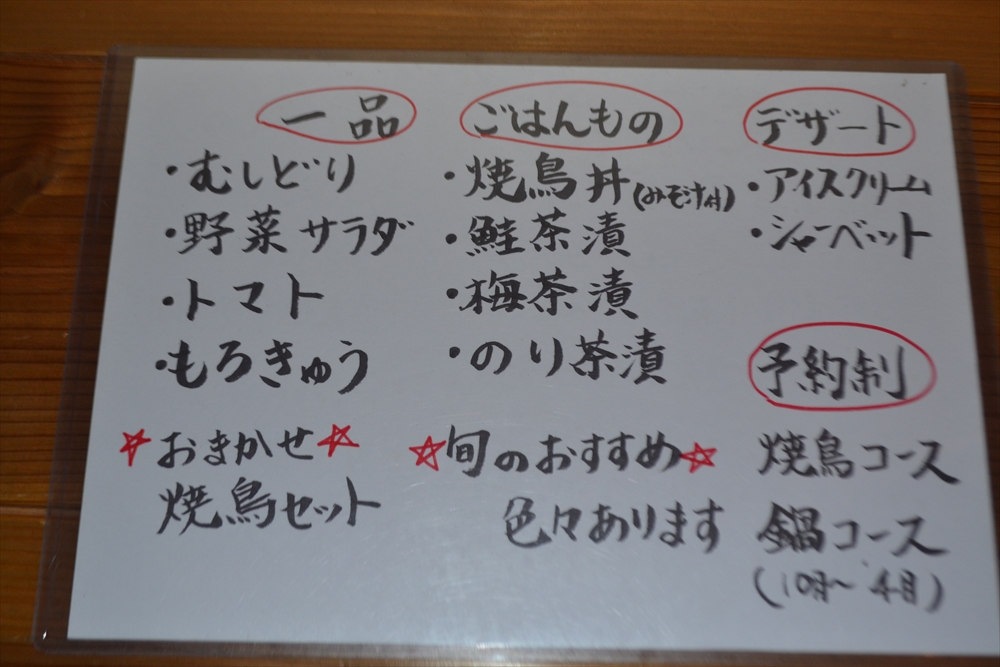 一品
・むしどり
・野菜サラダ
・トマト
・もろきゅう
☆おまかせ☆
焼鳥セット
ごはんもの
・焼鳥丼(みそ汁付)
・鮭茶漬
・梅茶漬
・のり茶漬
☆旬のおすすめ☆
色々あります
デザート
・アイスクリーム
・シャーベット
予約制
焼鳥コース
鍋コース
(10月〜4月)